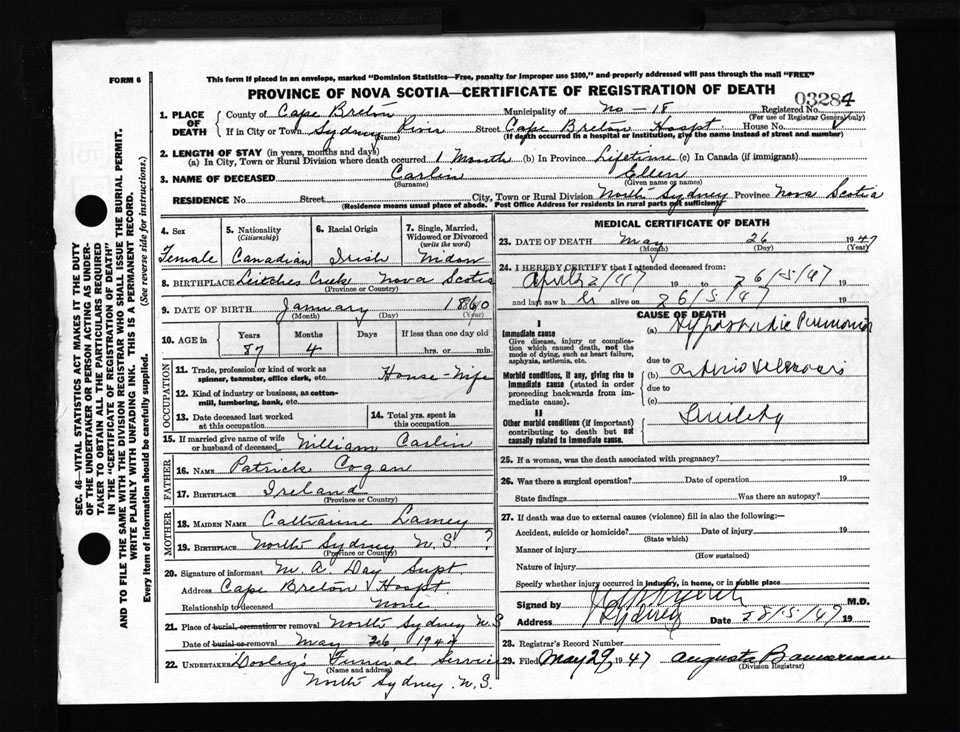 FORM 6
This form if placed in an envelope, marked "Dominion Statistics—Free, penalty for improper use $300," and properly addressed will pass through the mail "FREE"
PROVINCE OF NOVA SCOTIA—CERTIFICATE OF REGISTRATION OF DEATH
03284
1. PLACE OF DEATH
County of Cape Breton Municipality of No-18 Registered No.
(For use of Registrar General only)
If in City or Town Sydney River Street Cape Breton Hospt. House No.
(Name) (If death occurred in a hospital or institution, give the name instead of street and number)
2. LENGTH OF STAY (in years, months and days)
(a) In City, Town or Rural Division where death occurred 1 Month (b) In Province Lifetime (c) In Canada (if immigrant)
3. NAME OF DECEASED Carlin Ellen
(Surname) (Given name or names)
RESIDENCE No. Street City, Town or Rural Division North Sydney Province Nova Scotia
(Residence means usual place of abode. Post Office Address for residents in rural parts not sufficient)
4. Sex Female
5. Nationality (Citizenship) Canadian
6. Racial Origin Irish
7. Single, Married, Widowed or Divorced (write the word) Widow
8. BIRTHPLACE Leitches Creek Nova Scotia
(Province or Country)
9. DATE OF BIRTH January 1860
(Month) (Day) (Year)
10. AGE in Years Months Days If less than one day old
87 4 hrs. or min.
OCCUPATION
11. Trade, profession or kind of work as spinner, teamster, office clerk, etc. House-Wife
12. Kind of industry or business, as cotton-mill, lumbering, bank, etc.
13. Date deceased last worked at this occupation
14. Total yrs. spent in this occupation
15. If married give name of wife or husband of deceased William Carlin
FATHER
16. NAME Patrick Cogan
17. BIRTHPLACE Ireland
(Province or Country)
MOTHER
18. MAIDEN NAME Catharine Lamey
19. BIRTHPLACE North Sydney N.S ?
(Province or Country)
20. Signature of informant M. A. Day Supt.
Address Cape Breton Hospt.
Relationship to deceased None
21. Place of burial, cremation or removal North Sydney N.S
Date of burial or removal May 26, 1947
22. UNDERTAKER Dooley's Funeral Service
(Name and address)
North Sydney. N.S.
MEDICAL CERTIFICATE OF DEATH
23. DATE OF DEATH May 26 1947
(Month) (Day) (Year)
24. I HEREBY CERTIFY that I attended deceased from:
April 2/47 19 to 26/5/47 19
and last saw h er alive on 26/5/47 19
CAUSE OF DEATH
I
Immediate cause
Give disease, injury or complication which caused death, not the mode of dying, such as heart failure, asphyxia, asthenia, etc.
(a) Hypostatic Pneumonia
due to
Morbid conditions, if any, giving rise to immediate cause (stated in order proceeding backwards from immediate cause).
(b) Arterio Sclerosis
due to
(c)
II
Other morbid conditions (if important) contributing to death but not causally related to immediate cause.
Senility
25. If a woman, was the death associated with pregnancy?
26. Was there a surgical operation? Date of operation 19
State findings Was there an autopsy?
27. If death was due to external causes (violence) fill in also the following:—
Accident, suicide or homicide? Date of injury 19
(State which)
Manner of injury
(How sustained)
Nature of injury
Specify whether injury occurred in industry, in home, or in public place
Signed by M.D.
Address Sydney Date 28/5/47 19
28. Registrar's Record Number
29. Filed May 29, 1947 Augusta Bannerman
(Division Registrar)
SEC. 46—VITAL STATISTICS ACT MAKES IT THE DUTY
OF THE UNDERTAKER OR PERSON ACTING AS UNDERTAKER
TO OBTAIN ALL THE PARTICULARS REQUIRED
IN THE "CERTIFICATE OF REGISTRATION OF DEATH"
AND TO FILE THE SAME WITH THE DIVISION REGISTRAR WHO SHALL ISSUE THE BURIAL PERMIT.
WRITE PLAINLY WITH UNFADING INK. THIS IS A PERMANENT RECORD.
Every item of information should be carefully supplied. (See reverse side for instructions.)